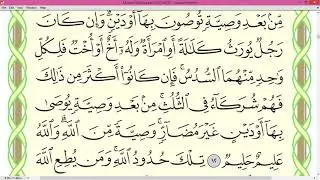 مِّنۢ بَعْدِ وَصِيَّةٍ تُوصُونَ بِهَآ أَوْ دَيْنٍ وَإِن كَانَ
رَجُلٌ يُورَثُ كَلَٰلَةً أَوِ ٱمْرَأَةٌ وَلَهُۥٓ أَخٌ أَوْ أُخْتٌ فَلِكُلِّ
وَٰحِدٍ مِّنْهُمَا ٱلسُّدُسُ فَإِن كَانُوٓا۟ أَكْثَرَ مِن ذَٰلِكَ
فَهُمْ شُرَكَآءُ فِى ٱلثُّلُثِ مِنۢ بَعْدِ وَصِيَّةٍ يُوصَىٰ
بِهَآ أَوْ دَيْنٍ غَيْرَ مُضَآرٍّ وَصِيَّةً مِّنَ ٱللَّهِ وَٱللَّهُ
عَلِيمٌ حَلِيمٌ ١٢ تِلْكَ حُدُودُ ٱللَّهِ وَمَن يُطِعِ ٱللَّهَ